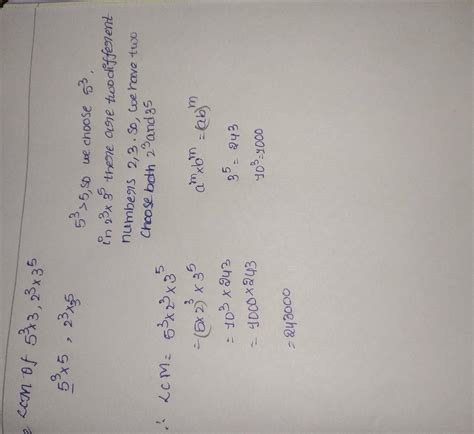 LCM of 5³×3, 2³×3⁵
5³×5 , 2³×3⁵
5³>5, so we choose 5³.
in 2³×3⁵ there are two different
numbers 2, 3. so, we have two
choose both 2³ and 3⁵
∴ LCM = 5³×2³×3⁵
= (5×2)³×3⁵
= 10³×243
= 1000×243
= 243000
aᵐ×bᵐ=(ab)ᵐ
3⁵=243
10³=1000